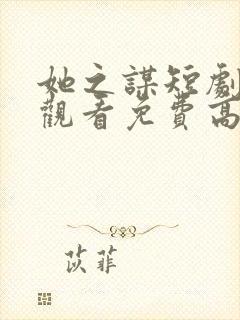 她之謀短劇
觀看免費高
苡菲